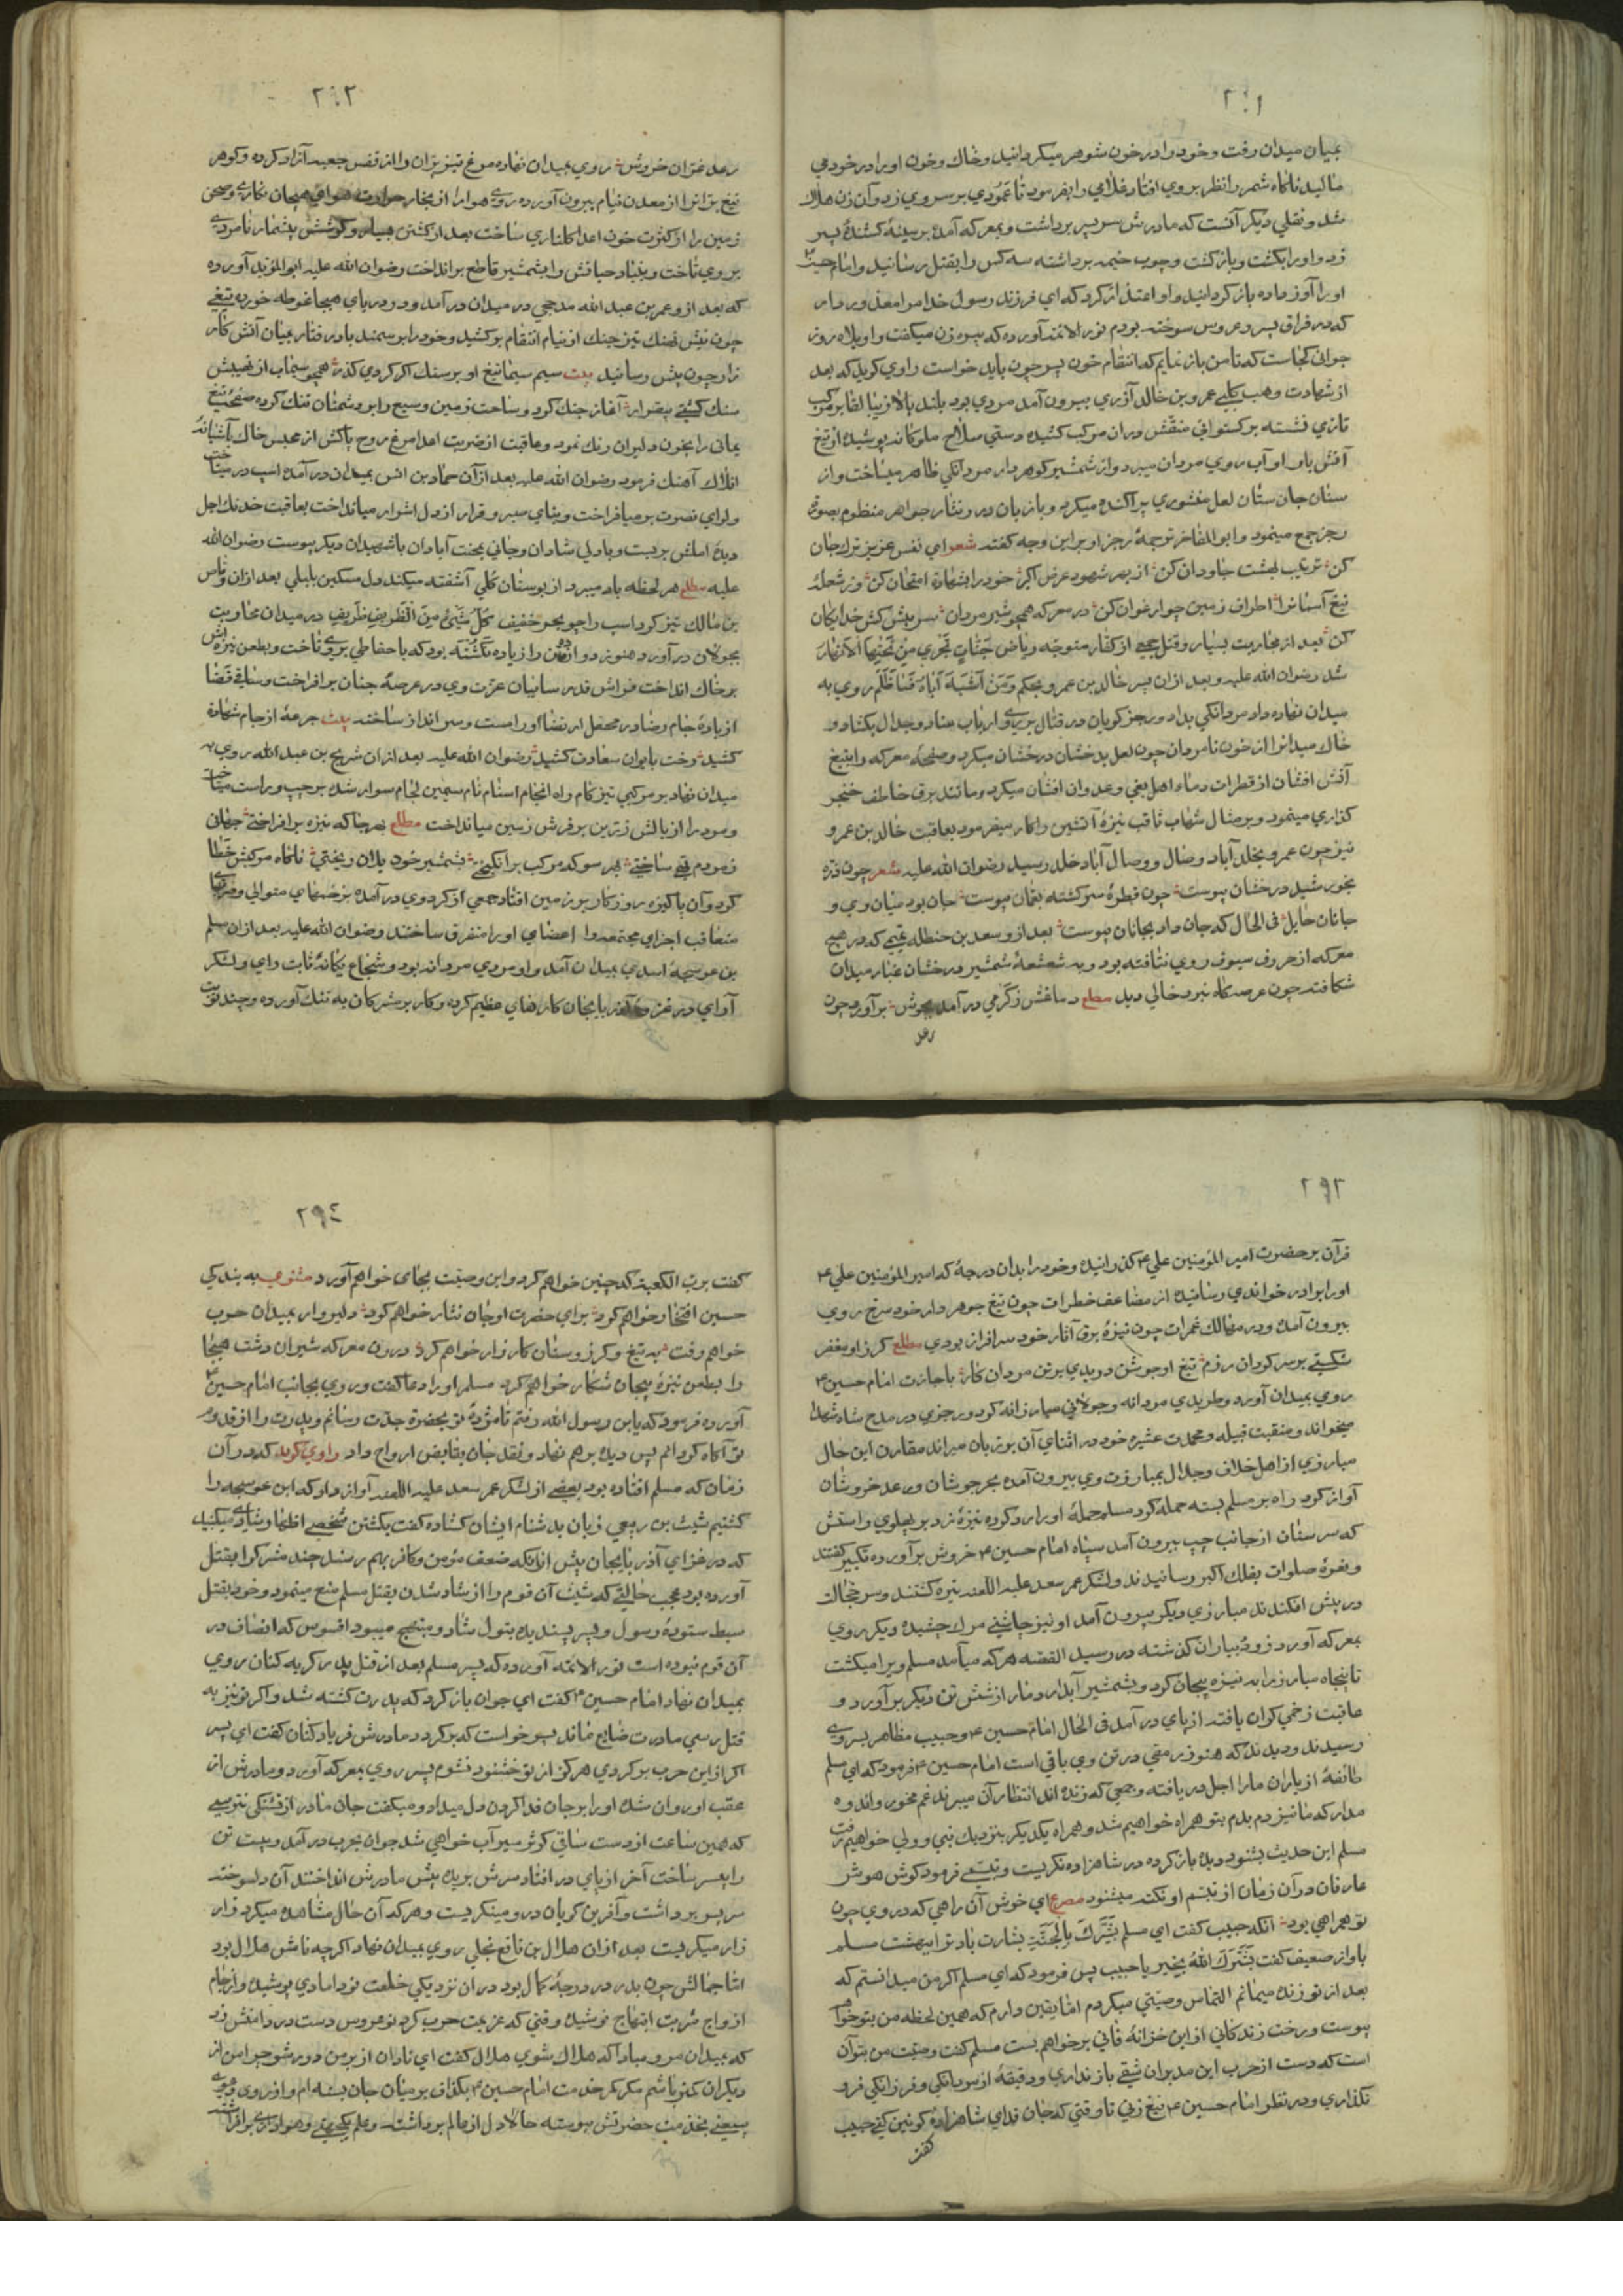 ٢٩١
بمیان میدان رفت و خود را در خون شوهر میکردانید و خاک و خون او را در خود می
مالید ناکاه شمر را نظر بر وی افتاد غلامی را بفرمود تا عمودی بر سر وی زد و آن زن هلاک
شد و نقلی دیکر آنست که مادرش سر پسر برداشت و بمعرکه آمد بر سینهٔ کشندهٔ پسر
زد و او را بکشت و بازکشت و چوب خیمه برداشته سه کس را بقتل رسانید و امام حسین
او را آواز داده باز کردانید و او اعتذار کرد که ای فرزند رسول خدا مرا معذور دار
که در فراق پسر و عروس سوخته بودم نور الائمه آورده که پیره زن میکفت واویلاه روز
جوانی کجاست که تا من باز نمایم که انتقام خون پسر چون باید خواست راوی کوید که بعد
از شهادت وهب کلبی عمرو بن خالد ازدی بیرون آمد مردی بود بلند بالا زیبا لقا بر مرکب
تازی نشسته برکستوانی منقش در آن مرکب کشیده و ستی سلاح ملوکانه پوشیده از تیغ
آتش بار او آب روی مردان میبرد و از شمشیر کوهردار مردانکی ظاهر میساخت و از
سنان جان ستان لعل منثوری پراکنده میکرد و با زبان در و نثار جواهر منظوم بصورة
رجز جمع مینمود و ابو المفاخر توجمهٔ رجز او بر این وجه کفته شعر ای نفس عزیز ترک جان
کن ترتیب بهشت جاودان کن از بهر شهود عرض اکبر خود را بشهادة امتحان کن وز شعلهٔ
تیغ آسمانرا اطراف زمین چو ارغوان کن در معرکه همچو شیر مردان سر پیش کش خدایکان
کن بعد از محاربت بسیار و قتل جمعی از کفار متوجه ریاض جَنّاتٍ تَجْرِي مِنْ تَحْتِهَا الْأَنْهَارُ
شد رضوان الله علیه و بعد از ان پسر خالد بن عمرو بحکم وَمَنْ أَشْبَهَ أَبَاهُ فَمَا ظَلَمَ روی به
میدان نهاده داد مردانکی بداد و رجز کویان در قتال بر روی ارباب عناد و جدال بکشاد و
خاک میدانرا از خون نامردان چون لعل بدخشان درخشان میکرد و صفحهٔ معرکه را بتیغ
آتش افشان از قطرات دماء اهل بغی و عدوان افشان میکرد و مانند برق خاطف خنجر
کذاری مینمود و بر مثال شهاب ثاقب نیزهٔ آتشین را کار میفرمود بعاقبت خالد بن عمرو
نیز چون عمرو بخلد آباد وصال و وصال آباد خلد رسید رضوان الله علیه شعر چون ذره
بخورشید درخشان پیوست چون قطرهٔ سرکشته بعمان پیوست جان بود میان وی و
جانان حایل فی الحال که جان داد بجانان پیوست بعد از و سعد بن حنظله تمیمی که در هیچ
معرکه از حروف سیوف روی نتافته بود و به شعشعهٔ شمشیر درخشان غبار میدان
شکافته چون عرصکاه نبرد خالی دید مطلع دماغش ز کرمی در آمد بجوش بر آورد چون
رعد
٢٩٢
رعد غران خروش روی بمیدان نهاده مرغ تیز پران را از قفس جعبه آزاد کرده و کوهر
تیغ برانرا از معدن نیام بیرون آورده روی هوا را از بخار حرارت هوای هیجان نکاری و صحن
زمین را از کثرت خون اعدا کلناری ساخت بعد از کشتن بسیار و کوشش بیشمار نامردی
بر وی تاخت و بنیاد حیاتش را بشمشیر قاطع برانداخت رضوان الله علیه ابو المؤید آورده
که بعد از و عمر بن عبد الله مذحجی در میدان در آمد و در دریای هیجا غوطه خورده تیغی
چون نیش نهنک تیز جنک از نیام انتقام برکشید و خود را بر سمند باد رفتار بمیان آتش کار
زار چون پیش رسانید بیت سیم سیما تیغ او بر سنک اکر کردی کذر همچو سیماب از نهیبش
سنک کشتی بیقرار آغاز جنک کرد و ساحت زمین وسیع را بر دشمنان تنک کرده صفحهٔ تیغ
یمانی را بخون دلیران رنک نمود و عاقبت از ضربت اعدا مرغ روح پاکش از مجلس خاک بآشیانهٔ
افلاک آهنک فرمود رضوان الله علیه بعد از آن حماد بن انس بمیدان در آمده اسب در میتاخت
و لوای نصرت بر میافراخت و بنای صبر و قرار از دل اشرار میانداخت بعاقبت خدنک اجل
دیدهٔ املش بر بست و با دلی شادان و جانی بجنت آبادان با شهیدان دیکر پیوست رضوان الله
علیه مطلع هر لحظه باد میبرد از بوستان کلی آشفته میکند دل مسکین بلبلی بعد از ان وقاص
بن مالک تیز کرد اسب را چو بحر خفیف كُلُّ شَيْءٍ مِنَ الظَّرِيفِ ظَرِيف در میدان محاربت
بجولان در آورد هنوز دو از ده تن را زیاده نکشته بود که با حفاطی بر وی تاخت و بطعن نیزه اش
بر خاک انداخت فراش قدر سایبان عزت وی در عرصهٔ جنان بر افراخت و ساقی قضا
از بادهٔ جام رضا در محفل ارتضا او را مست و سر انداز ساخت بیت جرعهٔ از جام شهادة
کشید رخت بایوان سعادت کشید رضوان الله علیه بعد از ان شریح بن عبد الله روی به
میدان نهاد بر مرکبی تیز کام راه انجام استام تام سیمین لجام سوار شده بر چپ و راست میتاخت
و مرد را از بالش زترین بر فرش زمین میانداخت مطلع بهر جا که نیزه بر افراختی جهانی
ز مردم تهی ساختی بهر سو که مرکب بر انکیختی بشمشیر خود یلان ریختی ناکاه مرکبش خطا
کرد و آن پاکیزه روزکار بر زمین افتاد جمعی از کرد وی در آمده بزخمهای متوالی و ضربتهای
متعاقب اجزای مجتمعه را اعضای او را متفرق ساختند رضوان الله علیه بعد از ان مسلم
بن عوسجهٔ اسدی بمیدان آمد و او مردی مردانه بود و شجاع یکانهٔ ثابت رای و لشکر
آرای در غزو آذر بایجان کارهای عظیم کرده و کار بر مشرکان به تنک آورده و چند نوبت
٢٩٣
قرآن بر حضرت امیر المؤمنین علی ع کذرانیده و خود را بدان درجهٔ که امیر المؤمنین علی ع
او را برادر خواندی رسانیده از مضاعف خطرات چون تیغ جوهر دار خود سرخ روی
بیرون آمده و در مهالک غمرات چون نیزهٔ برق آثار خود سرافراز بودی مطلع کرز او مغفر
شکستی بر سر کردان رزم تیغ او جوشن دریدی بر تن مردان کار باجازت امام حسین ع
روی بمیدان آورد و طریدی مردانه و جولانی مبارزانه کرد و رجزی در مدح شاه شهدا
میخواند و منقبت قبیله و محمدت عشیره خود در اثنای آن بر زبان میراند مقارن این حال
مبارزی از اهل خلاف و جدال بمبارزت وی بیرون آمده بحر جوشان و رعد خروشان
آواز کرد راه بر مسلم بسته حمله کرد مسلم حملهٔ او را رد کرده نیزهٔ زد بر پهلوی راستش
که سر سنان از جانب چپ بیرون آمد سپاه امام حسین ع خروش بر آورده تکبیر کفتند
و نعرهٔ صلوات بفلک اکبر رسانیدند و لشکر عمر سعد علیه اللعنه تیره کشتند و سر خجالت
در پیش افکندند مبارزی دیکر بیرون آمد او نیز چاشنی مرک چشیده دیکر روی
بمعرکه آورد زود بیاران کذشته در رسید القصه هر که میآمد مسلم ویرا میکشت
تا پنجاه مبارز را به نیزه پیچان کرد و بشمشیر آبدار دمار از شش تن دیکر بر آورد و
عاقبت زخمی کران یافته از پای در آمد فی الحال امام حسین ع و حبیب مظاهر بسر وی
رسیدند و دیدند که هنوز رمقی در تن وی باقی است امام حسین ع فرمود که ای مسلم
طائفهٔ از یاران ما را اجل در یافته و جمعی که زنده اند انتظار آن میبرند غم مخور و اندوه
مدار که ما نیز دم بدم بتو همراه خواهیم شد و همراه یکدیکر بنزدیک نبی و ولی خواهیم رفت
مسلم این حدیث بشنود دیده باز کرده در شاهزاده نکریست و تبسمی فرمود کوش هوش
عارفان در آن زمان از تبسم او نکته میشنود مصرع ای خوش آن راهی که در وی چون
تو همراهی بود آنکه حبیب کفت ای مسلم بَشَّرَكَ بِالْجَنَّةِ بشارت باد ترا ببهشت مسلم
باواز ضعیف کفت بَشَّرَكَ اللهُ بِخَيْر یا حبیب پس فرمود که ای مسلم اکر من میدانستم که
بعد از تو زنده میمانم التماس وصیتی میکردم اما یقین دارم که همین لحظه من بتو خواهم
پیوست و رخت زندکانی از این خزانهٔ فانی بر خواهم بست مسلم کفت وصیت من بتو آن
است که دست از حرب این مدبران شقی باز نداری و دقیقهٔ از مردانکی و فرزانکی فرو
نکذاری و در نظر امام حسین ع تیغ زنی تا وقتی که جان فدای شاهزادهٔ کونین کنی حبیب
کفت
٢٩٤
کفت برب الکعبه که چنین خواهم کرد و این وصیت بجای خواهم آورد مثنوی به بندکی
حسین افتخار خواهم کرد برای حضرت او جان نثار خواهم کرد دلیروار بمیدان حرب
خواهم رفت به تیغ و کرز و سنان کارزار خواهم کرد درون معرکه شیران دشت هیجا
را بطعن نیزهٔ پیچان شکار خواهم کرد مسلم او را دعا کفت و روی بجانب امام حسین ع
آورده فرمود که یابن رسول الله رفتم تا مژدهٔ تو بحضرة جدت رسانم و پدرت را از قدوم
تو آکاه کردانم پس دیده بر هم نهاد و نقد جان بقابض ارواح داد راوی کوید که در آن
زمان که مسلم افتاده بود بعضی از لشکر عمر سعد علیه اللعنه آواز داد که ابن عوسجه را
کشتیم شبث بن ربعی زبان بدشنام ایشان کشاده کفت بکشتن شخصی اظهار شادی میکنید
که در غزای آذر بایجان پیش از آنکه ضعف مؤمن و کافر بهم رسند چند مشرک را بقتل
آورده بود عجب حالتی که شبث آن قوم را از شاد شدن بقتل مسلم منع مینمود و خود بقتل
سبط ستودهٔ رسول و پسر پسندیدهٔ بتول شاد و مبتهج میبود افسوس که انصاف در
آن قوم نبوده است نور الائمه آورده که پسر مسلم بعد از قتل پدر کریه کنان روی
بمیدان نهاد امام حسین ع کفت ای جوان باز کرد که پدرت کشته شد و اکر تو نیز به
قتل رسی مادرت ضایع ماند پسر خواست که بر کردد مادرش فریاد کنان کفت ای پسر
اکر از این حرب بر کردی هرکز از تو خشنود نشوم پسر روی بمعرکه آورد و مادرش از
عقب او روان شده او را بر جان فدا کردن دل میداد و میکفت جان مادر از تشنکی نترسی
که همین ساعت از دست ساقی کوثر سیر آب خواهی شد جوان بحرب در آمد و بیست تن
را بسر ساخت آخر از پای در افتاد سرش بریده پیش مادرش انداختند آن دلسوخته
سر پسر برداشت و آفرین کویان در و مینکریست و هر که آن حال مشاهده میکرد زار
زار میکریست بعد از ان هلال بن نافع بجلی روی بمیدان نهاد اکرچه نامش هلال بود
اما جمالش چون بدر در درجهٔ کمال بود در ان نزدیکی خلعت نو دامادی پوشیده و از جام
ازدواج شربت ابتهاج نوشیده وقتی که عزیمت حرب کرد نو عروس دست در دامنش زد
که بمیدان مرو مبادا که هلاک شوی هلال کفت ای نادان از بر من دور شو چرا من از
دیکران کمتر باشم مکر کمر خدمت امام حسین ع بکزاف بر میان جان بسته ام و از روی
بیعنی بخدمت حضرتش پیوسته حالا دل از عالم برداشته و علم یکجهتی و هواداری بر افراشته